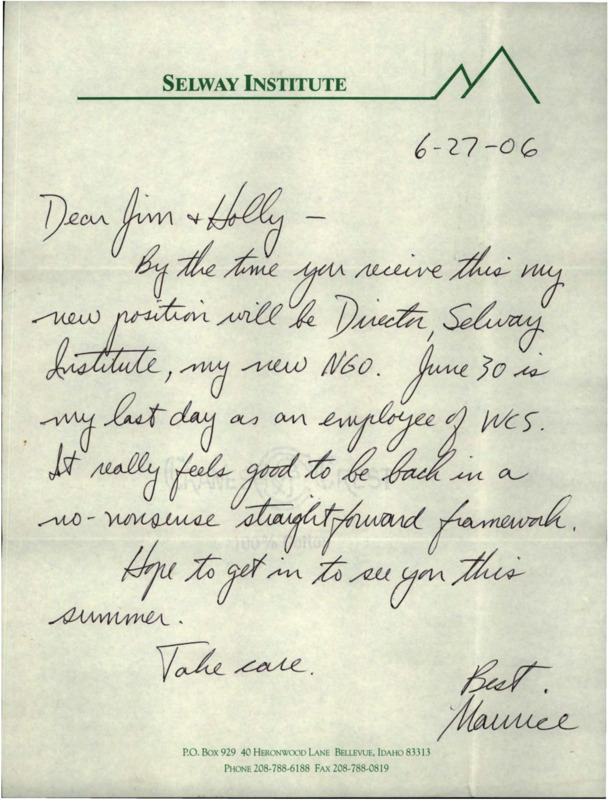 SELWAY INSTITUTE
6-27-06
Dear Jim + Holly —
By the time you receive this my
new position will be Director, Selway
Institute, my new NGO. June 30 is
my last day as an employee of WCS.
It really feels good to be back in a
no-nonsense straightforward framework.
Hope to get in to see you this
summer.
Take care.
Best.
Maurice
P.O. BOX 929 40 HERONWOOD LANE BELLEVUE, IDAHO 83313
PHONE 208-788-6188 FAX 208-788-0819